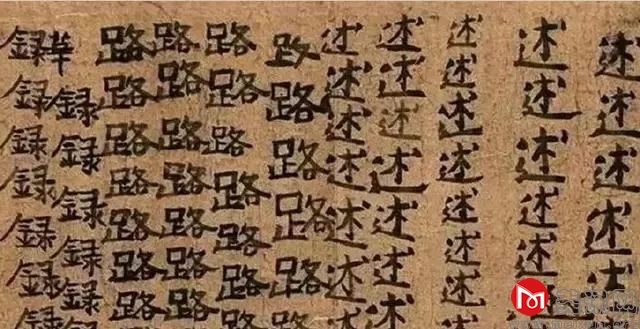 述述述述述
述述述述述述
述述述述述述述
述述述述述述述
述述述述述述述
路路路路路路
路路路路路路路
路路路路路路路
路路路路路路路
華録録録録録録
録録録録録録録